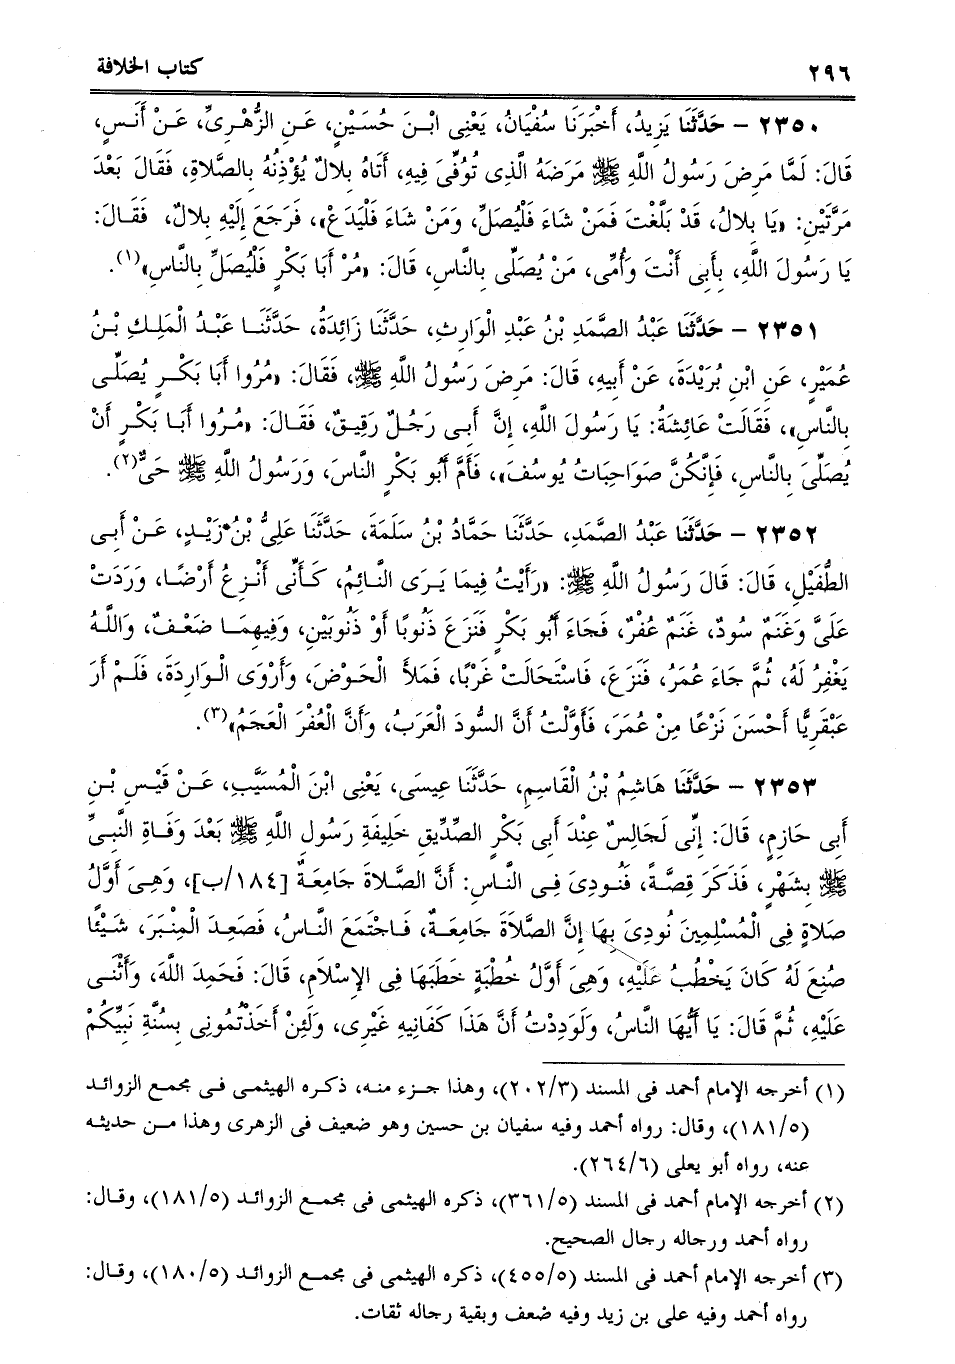 ٢٩٦ كتاب الخلافة
٢٣٥٠ – حَدَّثَنَا يَزِيدُ، أَخْبَرَنَا سُفْيَانُ، يَعْنِى ابْنَ حُسَيْنٍ، عَنِ الزُّهْرِىِّ، عَنْ أَنَسٍ،
قَالَ: لَمَّا مَرِضَ رَسُولُ اللَّهِ ﷺ مَرَضَهُ الَّذِى تُوُفِّىَ فِيهِ، أَتَاهُ بِلالٌ يُؤْذِنُهُ بِالصَّلاةِ، فَقَالَ بَعْدَ
مَرَّتَيْنِ: «يَا بِلالُ، قَدْ بَلَّغْتَ فَمَنْ شَاءَ فَلْيُصَلِّ، وَمَنْ شَاءَ فَلْيَدَعْ»، فَرَجَعَ إِلَيْهِ بِلالٌ، فَقَالَ:
يَا رَسُولَ اللَّهِ، بِأَبِى أَنْتَ وَأُمِّى، مَنْ يُصَلِّى بِالنَّاسِ، قَالَ: «مُرْ أَبَا بَكْرٍ فَلْيُصَلِّ بِالنَّاسِ»(١).
٢٣٥١ – حَدَّثَنَا عَبْدُ الصَّمَدِ بْنُ عَبْدِ الْوَارِثِ، حَدَّثَنَا زَائِدَةُ، حَدَّثَنَا عَبْدُ الْمَلِكِ بْنُ
عُمَيْرٍ، عَنِ ابْنِ بُرَيْدَةَ، عَنْ أَبِيهِ، قَالَ: مَرِضَ رَسُولُ اللَّهِ ﷺ، فَقَالَ: «مُرُوا أَبَا بَكْرٍ يُصَلِّى
بِالنَّاسِ»، فَقَالَتْ عَائِشَةُ: يَا رَسُولَ اللَّهِ، إِنَّ أَبِى رَجُلٌ رَقِيقٌ، فَقَالَ: «مُرُوا أَبَا بَكْرٍ أَنْ
يُصَلِّىَ بِالنَّاسِ، فَإِنَّكُنَّ صَوَاحِبَاتُ يُوسُفَ»، فَأَمَّ أَبُو بَكْرٍ النَّاسَ، وَرَسُولُ اللَّهِ ﷺ حَىٌّ(٢).
٢٣٥٢ – حَدَّثَنَا عَبْدُ الصَّمَدِ، حَدَّثَنَا حَمَّادُ بْنُ سَلَمَةَ، حَدَّثَنَا عَلِىُّ بْنُ زَيْدٍ، عَنْ أَبِى
الطُّفَيْلِ، قَالَ: قَالَ رَسُولُ اللَّهِ ﷺ: «رَأَيْتُ فِيمَا يَرَى النَّائِمُ، كَأَنِّى أَنْزِعُ أَرْضًا، وَرَدَتْ
عَلَىَّ وَغَنَمٌ سُودٌ، غَنَمٌ عُفْرٌ، فَجَاءَ أَبُو بَكْرٍ فَنَزَعَ ذَنُوبًا أَوْ ذَنُوبَيْنِ، وَفِيهِمَا ضَعْفٌ، وَاللَّهُ
يَغْفِرُ لَهُ، ثُمَّ جَاءَ عُمَرُ، فَنَزَعَ، فَاسْتَحَالَتْ غَرْبًا، فَمَلأَ الْحَوْضَ، وَأَرْوَى الْوَارِدَةَ، فَلَمْ أَرَ
عَبْقَرِيًّا أَحْسَنَ نَزْعًا مِنْ عُمَرَ، فَأَوَّلْتُ أَنَّ السُّودَ الْعَرَبُ، وَأَنَّ الْعُفْرَ الْعَجَمُ»(٣).
٢٣٥٣ – حَدَّثَنَا هَاشِمُ بْنُ الْقَاسِمِ، حَدَّثَنَا عِيسَى، يَعْنِى ابْنَ الْمُسَيَّبِ، عَنْ قَيْسِ بْنِ
أَبِى حَازِمٍ، قَالَ: إِنِّى لَجَالِسٌ عِنْدَ أَبِى بَكْرٍ الصِّدِّيقِ خَلِيفَةِ رَسُولِ اللَّهِ ﷺ بَعْدَ وَفَاةِ النَّبِىِّ
ﷺ بِشَهْرٍ، فَذَكَرَ قِصَّةً، فَنُودِىَ فِى النَّاسِ: أَنَّ الصَّلاةَ جَامِعَةٌ [١٨٤/ب]، وَهِىَ أَوَّلُ
صَلاةٍ فِى الْمُسْلِمِينَ نُودِىَ بِهَا إِنَّ الصَّلاةَ جَامِعَةٌ، فَاجْتَمَعَ النَّاسُ، فَصَعِدَ الْمِنْبَرَ، شَيْئًا
صُنِعَ لَهُ كَانَ يَخْطُبُ عَلَيْهِ، وَهِىَ أَوَّلُ خُطْبَةٍ خَطَبَهَا فِى الإِسْلامِ، قَالَ: فَحَمِدَ اللَّهَ، وَأَثْنَى
عَلَيْهِ، ثُمَّ قَالَ: يَا أَيُّهَا النَّاسُ، وَلَوَدِدْتُ أَنَّ هَذَا كَفَانِيهِ غَيْرِى، وَلَئِنْ أَخَذْتُمُونِى بِسُنَّةِ نَبِيِّكُمْ
(١) أخرجه الإمام أحمد فى المسند (٢٠٢/٣)، وهذا جزء منه، ذكره الهيثمى فى مجمع الزوائد
(١٨١/٥)، وقال: رواه أحمد وفيه سفيان بن حسين وهو ضعيف فى الزهرى وهذا من حديثه
عنه، رواه أبو يعلى (٢٦٤/٦).
(٢) أخرجه الإمام أحمد فى المسند (٣٦١/٥)، ذكره الهيثمى فى مجمع الزوائد (١٨١/٥)، وقال:
رواه أحمد ورجاله رجال الصحيح.
(٣) أخرجه الإمام أحمد فى المسند (٤٥٥/٥)، ذكره الهيثمى فى مجمع الزوائد (١٨٠/٥)، وقال:
رواه أحمد وفيه على بن زيد وفيه ضعف وبقية رجاله ثقات.